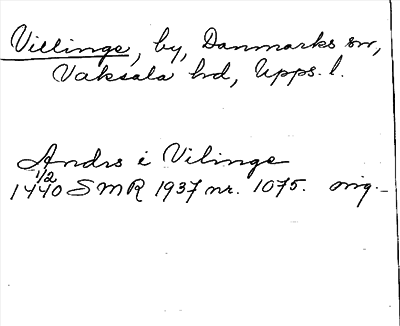 Villinge, by, Danmarks sn,
Vaksala hd, Upps. l.
Andrs i Vilinge
1/2
1440 SMR 1937 nr. 1075. orig.